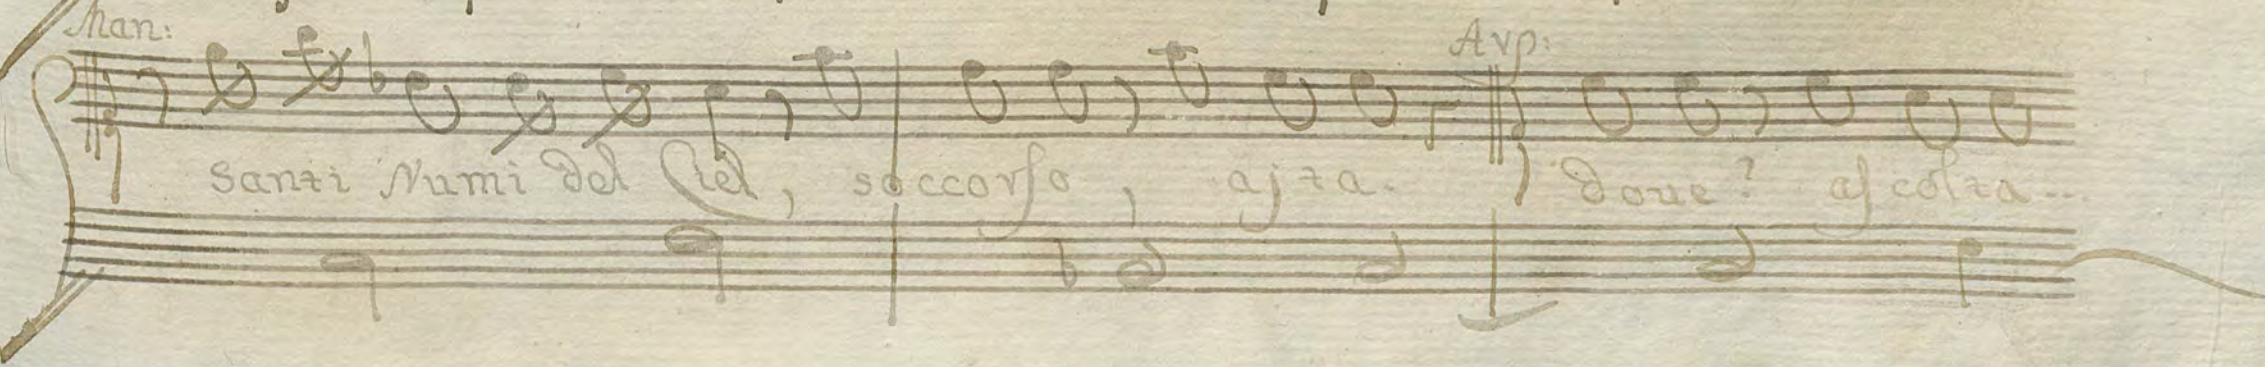 Man: Arp:
Santi Numi del Ciel, soccorso, ajta. doue? ascolta...